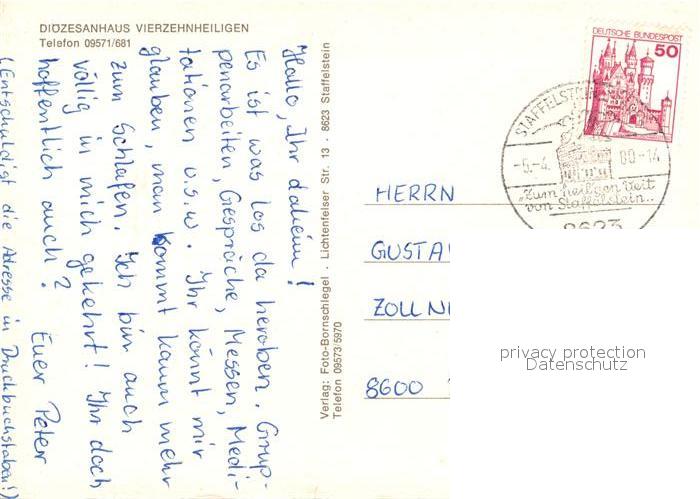 DIÖZESANHAUS VIERZEHNHEILIGEN
Telefon 09571/681
Hallo, Ihr daheim!
Es ist was los da heroben. Grup-
penarbeiten, Gespräche, Messen, Medi-
tationen u.s.w. Ihr könnt mir
glauben, man kommt kaum mehr
zum Schlafen. Ich bin auch
völlig in mich gekehrt! Ihr doch
hoffentlich auch? Euer Peter
(Entschuldigt die Adresse in Druckbuchstaben!)
Verlag: Foto-Bornschlegel · Lichtenfelser Str. 13 · 8623 Staffelstein
Telefon 09573/5970
DEUTSCHE BUNDESPOST
50
STAFFELSTEIN
-5.-4. 80-14
"Zum heiligen Veit
von Staffelstein"
8623
HERRN
GUSTA
ZOLLN
8600
privacy protection
Datenschutz